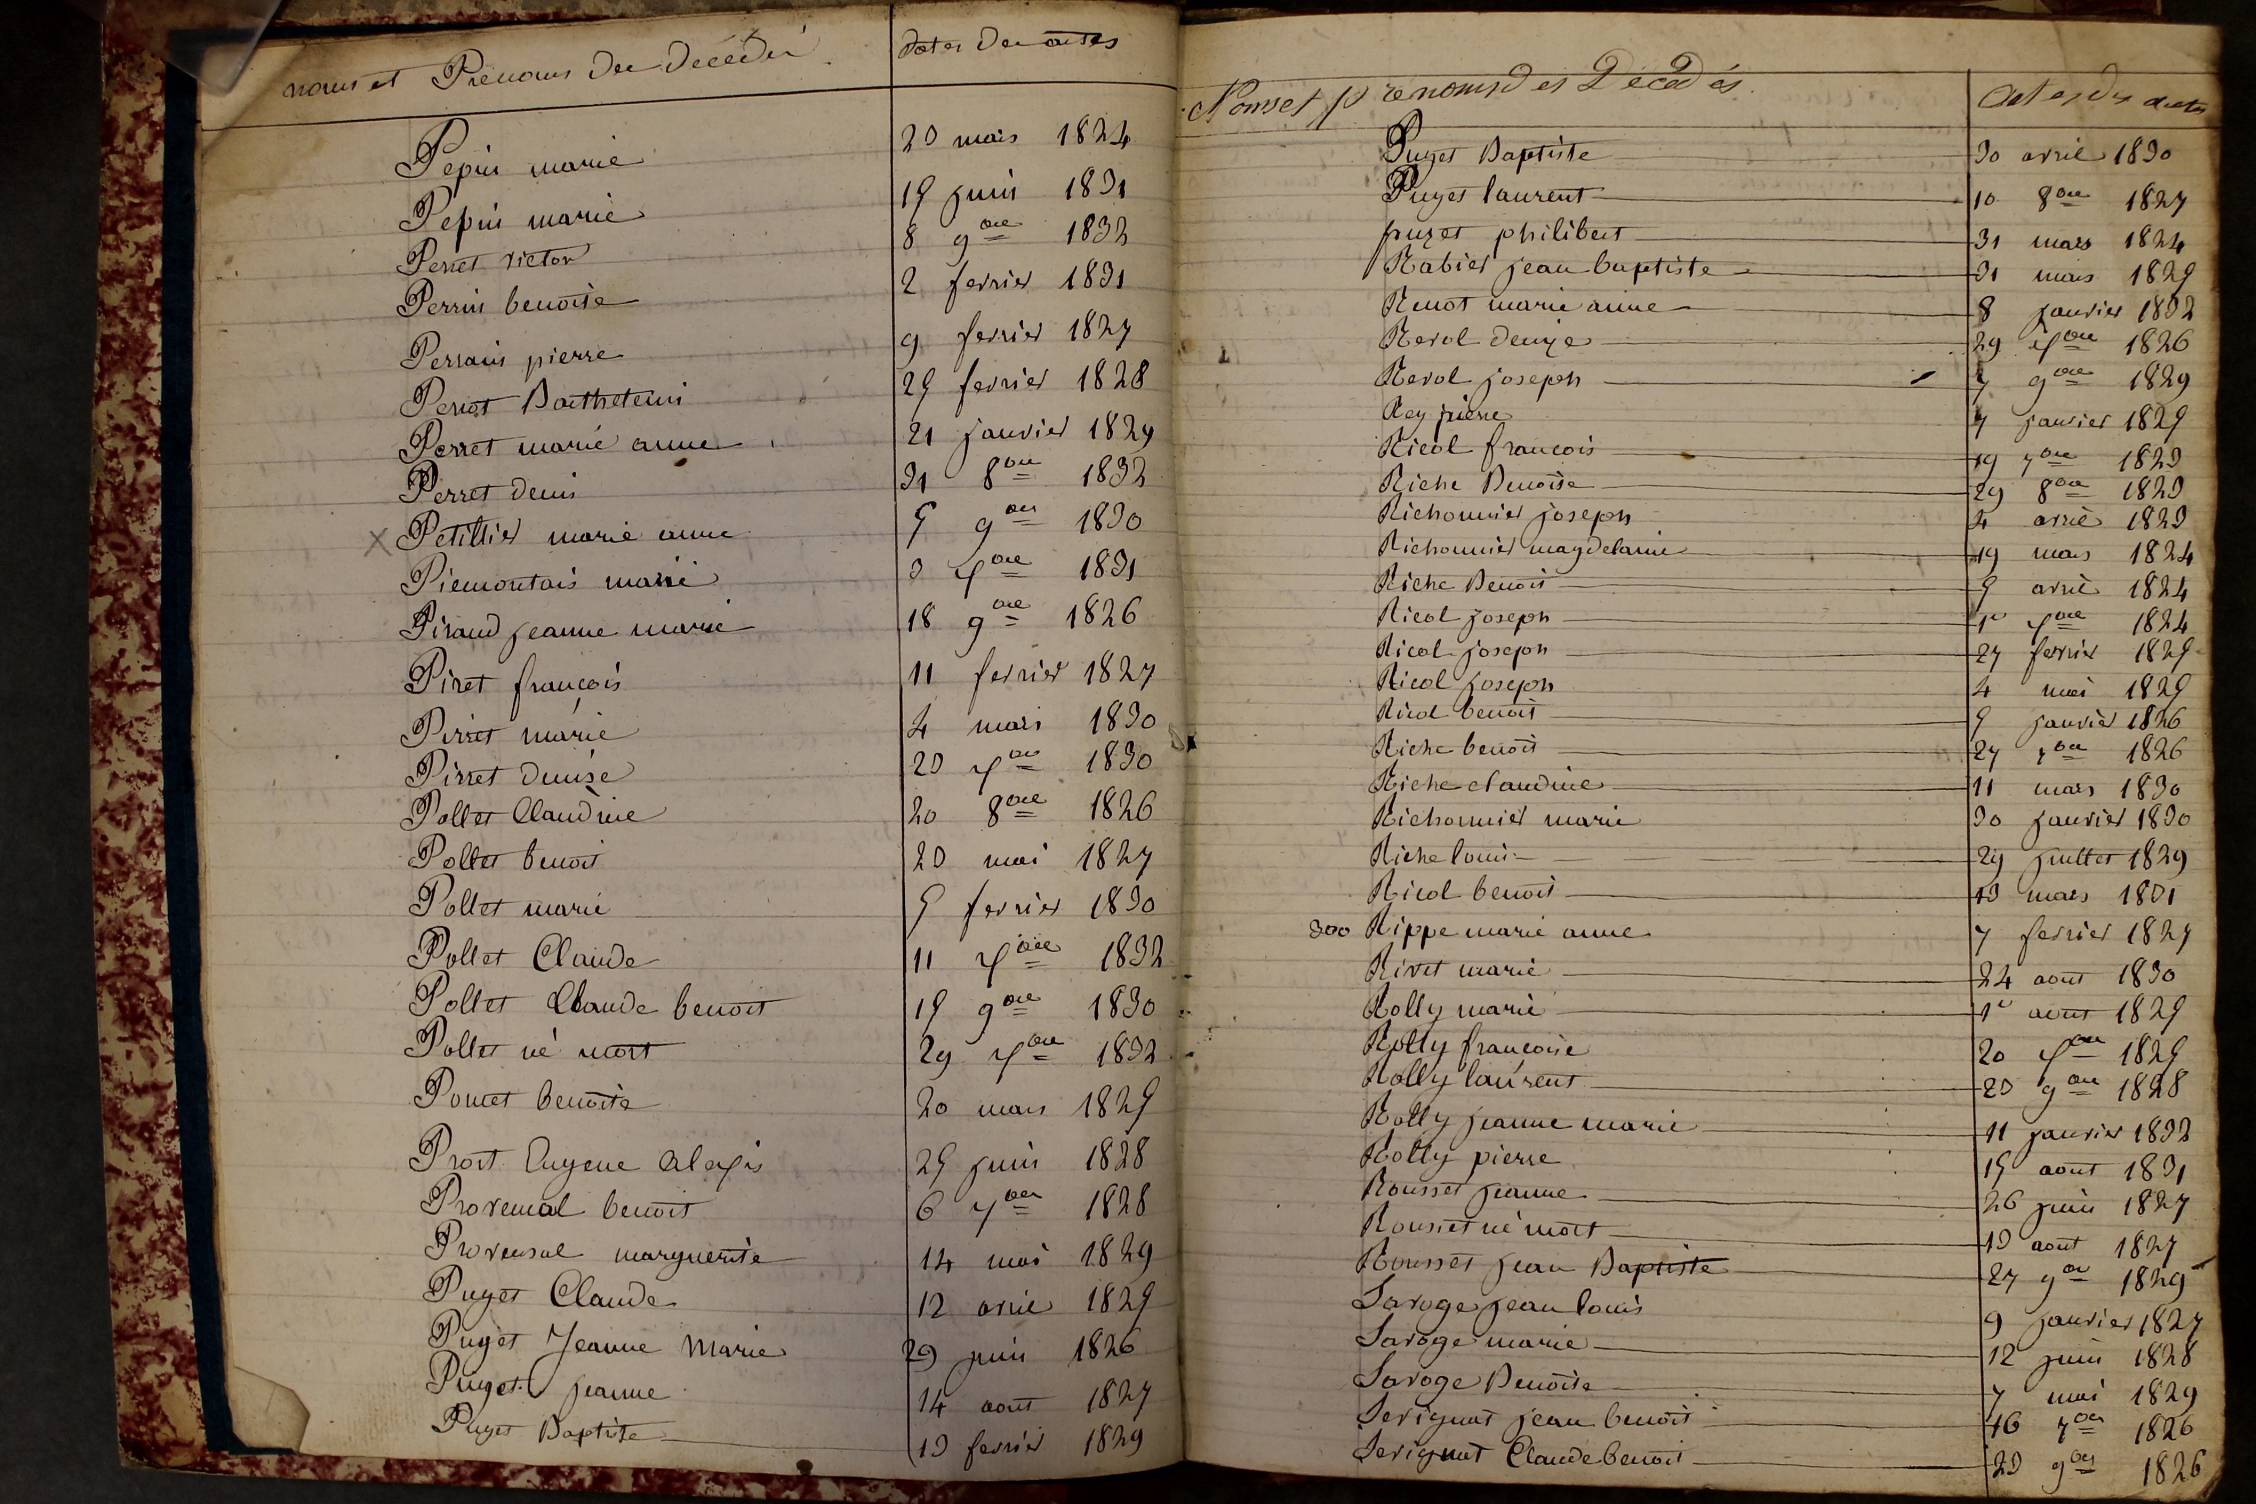 noms et Prénoms des décédés dates des actes
Pepin marie 23 mars 1824
Pepin marie 15 juin 1831
Perret victor 8 9bre 1832
Perrin benoite 2 fevrier 1831
Perrain pierre 9 fevrier 1827
Perrot Barthelemi 25 fevrier 1828
Perret marie anne 21 janvier 1829
Perret denis 31 8bre 1832
x Petillier marie anne 5 9bre 1830
Piemontais marie 3 xbre 1831
Piraud jeanne marie 18 9bre 1826
Piret françois 11 fevrier 1827
Pirret marie 4 mars 1830
Pirret denise 23 xbre 1830
Pollet Claudine 20 8bre 1826
Pollet benoit 23 mai 1827
Pollet marie 5 fevrier 1830
Pollet Claude 11 xbre 1832
Pollet Claude benoit 15 9bre 1830
Pollet né mort 29 xbre 1832
Poncet benoite 20 mars 1825
Prost Eugene alexis 25 juin 1828
Provensal benoit 6 7bre 1828
Provensal marguerite 14 mai 1829
Puget Claude 12 avril 1825
Puget Jeanne Marie 29 juin 1826
Puget jeanne 14 aout 1827
Puget Baptiste 13 fevrier 1829
Noms et prenoms des Décédés dates des actes
Puget Baptiste 30 avril 1830
Puget laurent 10 8bre 1827
puget philibert 31 mars 1824
Rabier jean baptiste 31 mars 1825
Renot marie anne 8 janvier 1832
Revol denise 29 xbre 1826
Revol joseph 7 9bre 1829
Rey pierre 7 janvier 1825
Ricol françois 19 7bre 1823
Riche Benoite 29 8bre 1823
Richonnier joseph 4 avril 1823
Richonnier magdelaine 19 mars 1824
Riche Benoit 5 avril 1824
Ricol joseph 1er xbre 1824
Ricol joseph 27 fevrier 1825
Ricol joseph 4 mai 1825
Ricol benoit 5 janvier 1826
Riche benoit 27 7bre 1826
Riche claudine 11 mars 1830
Richonnier marie 30 janvier 1830
Riche louis 29 juillet 1829
Ricol benoit 13 mars 1831
300 Rippe marie anne 7 fevrier 1827
Rivet marie 24 aout 1830
Rolly marie 1er aout 1825
Rolly françoise 20 xbre 1825
Rolly laurent 23 9bre 1828
Rolly jeanne marie 11 janvier 1832
Rolly pierre 15 aout 1831
Rousset jeanne 26 juin 1827
Rousset né mort 13 aout 1827
Rousset jean Baptiste 27 9bre 1829
Saroge jean louis 9 janvier 1827
Saroge marie 12 juin 1828
Saroge Benoite 7 mai 1829
Serignat jean benoit 16 7bre 1826
Serignat Claude benoit 23 9bre 1826